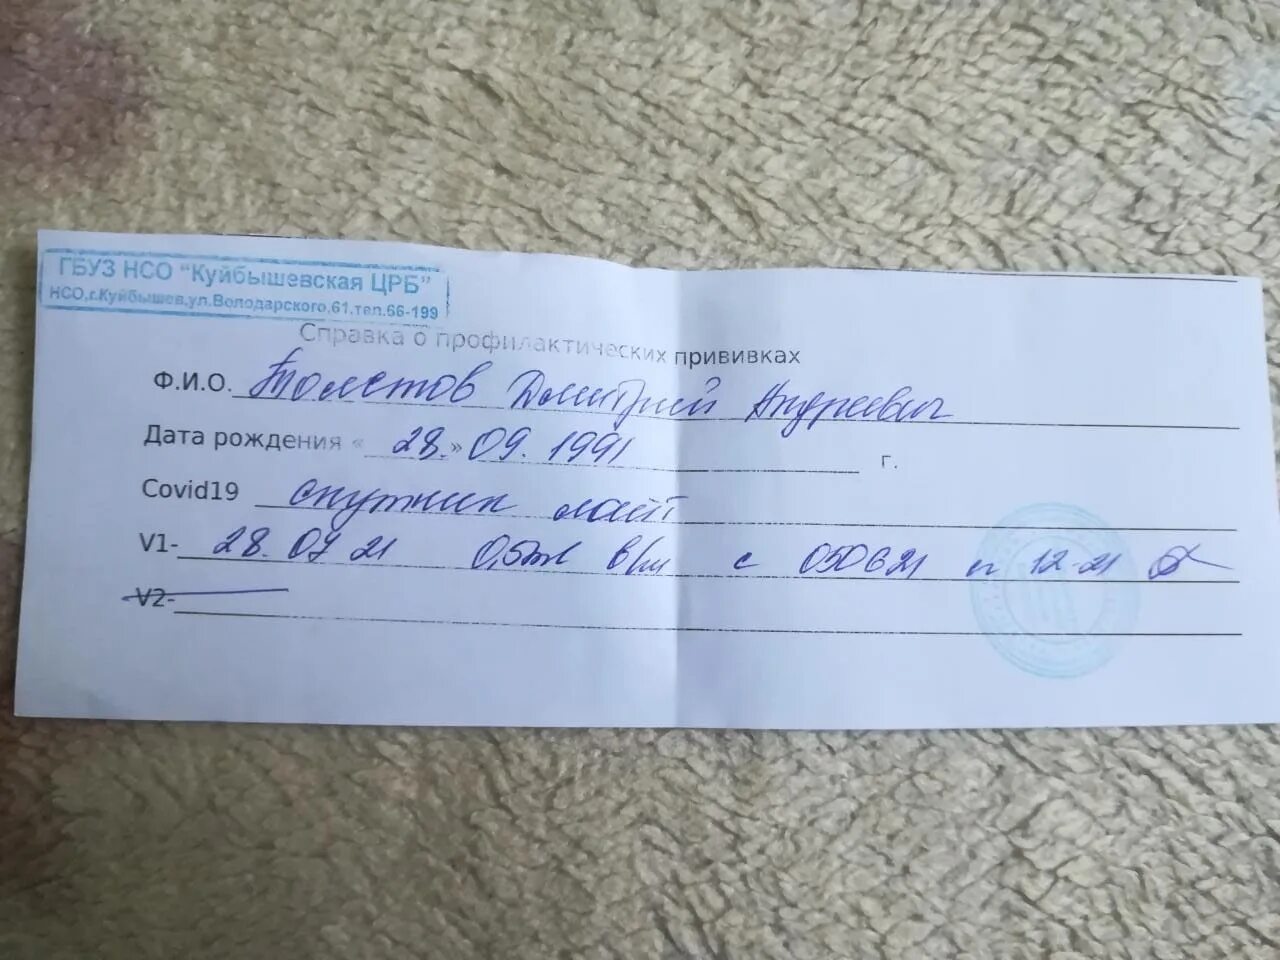 ГБУЗ НСО "Куйбышевская ЦРБ"
НСО,г.Куйбышев,ул.Володарского,61,тел.66-199
Справка о профилактических прививках
Ф.И.О. Толстов Дмитрий Андреевич
Дата рождения « 28.» 09. 1991 г.
Covid19 спутник лайт
V1- 28.07 21 0,5мл в/м с 050621 п 12-21
V2-